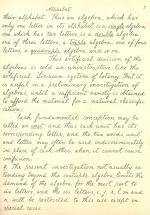 Alphabet 7
their alphabet. Thus an algebra, which has
only one letter in its alphabet is a single algebra,
one which has two letters is a double algebra,
one of three letters, a triple algebra, one of four
letters, a quadruple algebra, and so on.
This artificial division of the
algebras is not an uninstructive like the
artificial Linnean system of botany. But it
is useful in a preliminary investigation of
algebras, until a sufficient variety is obtained
to afford the material for a natural classifi-
cation.
Each fundamental conception may be
called an unit; and thus each unit has its
corresponding letter, and the two words, unit
and letter may often be used indiscriminately
in place of each other, when it cannot cause
confusion.
The present investigation not usually ex-
tending beyond the sextuple algebra, limits the
demand of the algebra for the most part to
six letters; and the six letters, i, j, k, l, m and
n, will be restricted to this use except in
special cases.